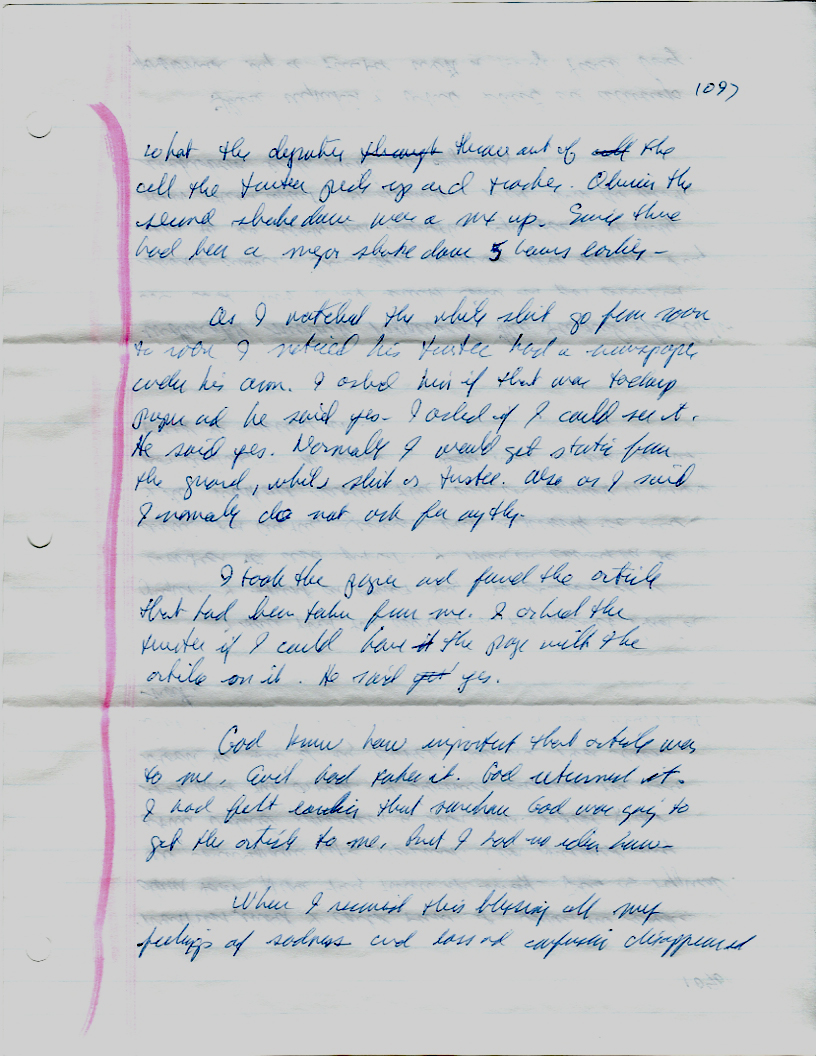 1097
what the deputies through threw out of cell the
cell the trustee picks up and trashes. Obvious the
second shakedown was a mix up. Since there
had been a major shake down 5 hours earlier -
As I watched the white shirt go from room
to room I noticed his trustee had a newspaper
under his arm. I asked him if that was todays
paper and he said yes. I asked if I could see it.
He said yes. Normally I would get static from
the guard, white shirt or trustee. Also as I said
I normally do not ask for anything.
I took the paper and found the article
that had been taken from me. I asked the
trustee if I could have it the page with the
article on it. He said yes.
God knew how important that article was
to me. Evil had taken it. God returned it.
I had felt earlier that somehow God was going to
get the article to me, but I had no idea how-
When I received this blessing all my
feelings of sadness and loss and confusion disappeared